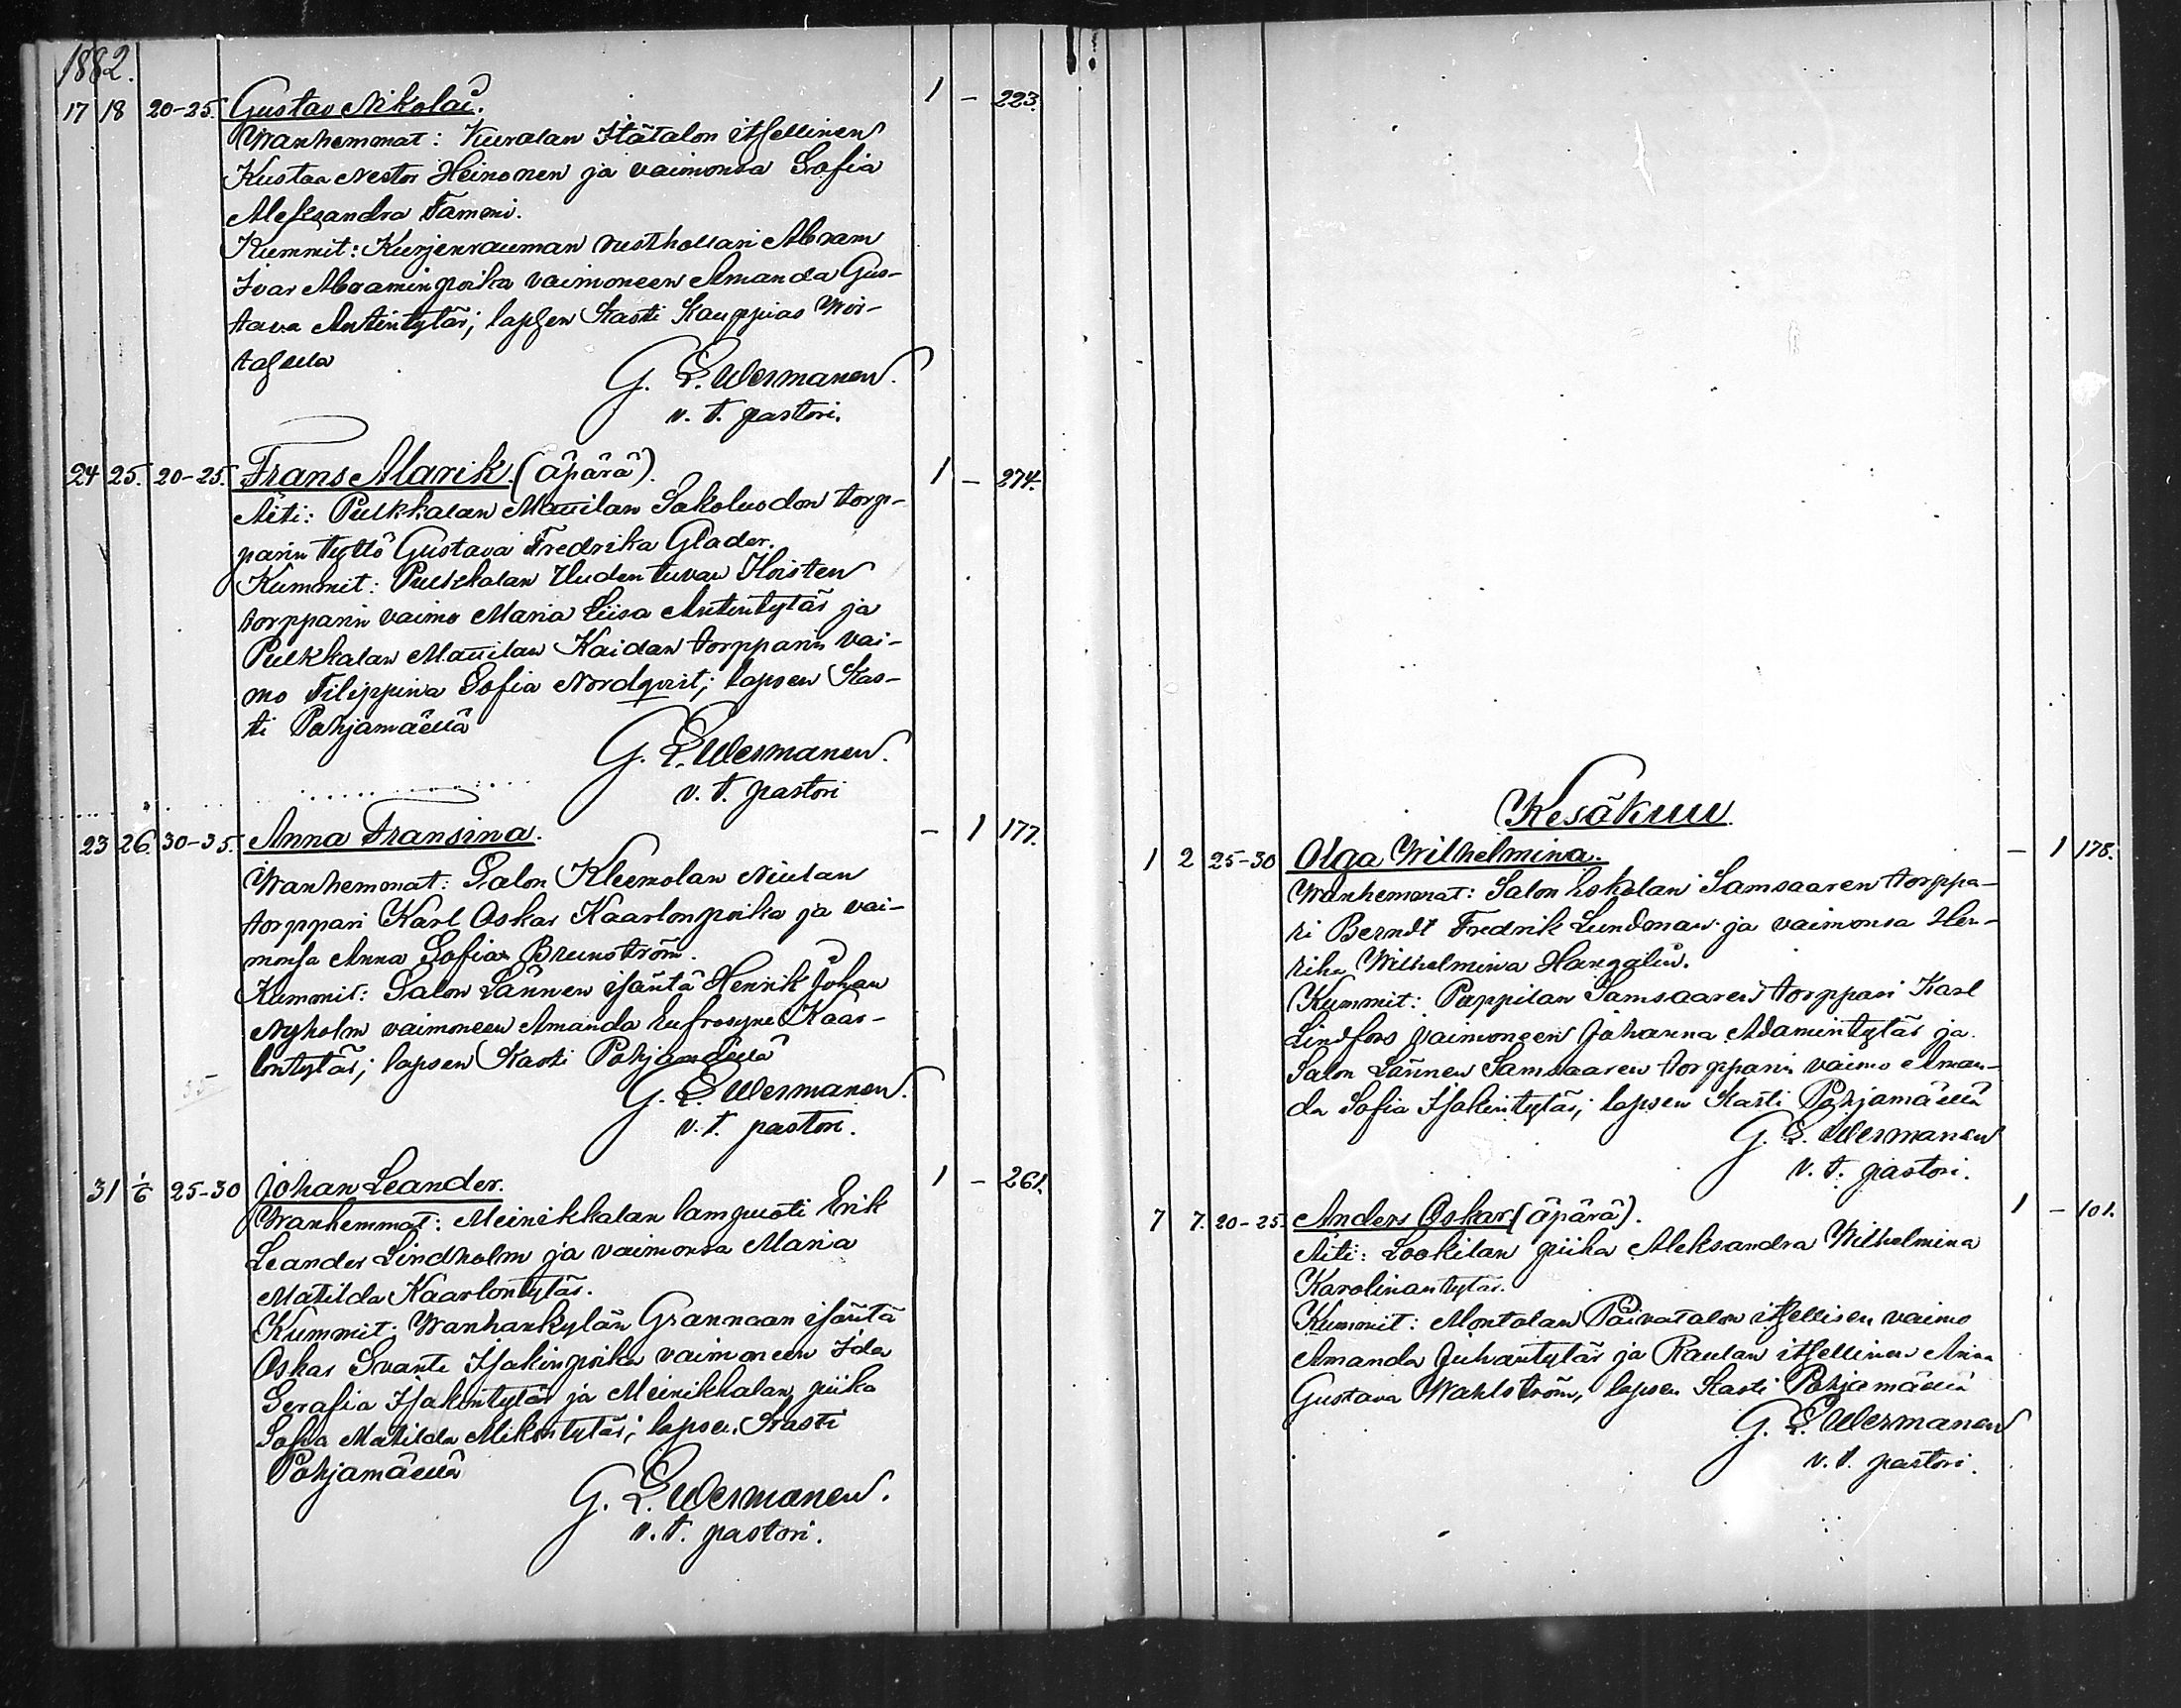 1882.
17 18 20-25. Gustav Nikolai. 1 - 223.
Wanhemmat: Kuralan Itätalon itsellinen
Kustaa Nestor Heinonen ja vaimonsa Sofia
Aleksandra Tammi.
Kummit: Kurjenrauman rusthollari Abram
Ivar Abraminpoika vaimoneen Amanda Gus-
tava Antintytär; lapsen kasti Kauppias Wir-
tasella
G. E. Wermanen.
v. t. pastori.
24 25. 20-25. Frans Marik. (äpärä). 1 - 274.
Äiti: Pulkkalan Mattilan Sakoluodon torp-
parin tyttö Gustava Fredrika Glader.
Kummit: Pulkkalan Uudentuvan Hoisten
torpparin vaimo Maria Liisa Antintytär ja
Pulkkalan Mattilan Kaidan torpparin vai-
mo Filippina Sofia Nordqvist; lapsen kas-
ti Pohjamäellä
G. E. Wermanen.
v. t. pastori
23 26. 30-35. Anna Fransina. - 1 177.
Wanhemmat: Salon Kleemolan Niulan
torppari Karl Oskar Kaarlonpoika ja vai-
monsa Anna Sofia Brunström.
Kummit: Salon Lännen isäntä Henrik Johan
Nyholm vaimoneen Amanda Eufrosyne Kaar-
lontytär; lapsen kasti Pohjamäellä
35
G. E. Wermanen.
v. t. pastori.
31 1/6 25-30 Johan Leander. 1 - 261.
Wanhemmat: Meinikkalan lampuoti Erik
Leander Lindholm ja vaimonsa Maria
Matilda Kaarlontytär.
Kummit: Wanhankylän Grannaan isäntä
Oskar Svante Isakinpoika vaimoneen Ida
Serafia Isakintytär ja Meinikkalan piika
Sofia Matilda Mikontytär; lapsen kasti
Pohjamäellä
G. E. Wermanen.
v. t. pastori.
Kesäkuu
1 2 25-30 Olga Wilhelmina. - 1 178.
Wanhemmat: Salon Eskolan Samsaaren torppa-
ri Berndt Fredrik Lundman ja vaimonsa Hen-
rika Wilhelmina Hanggelin.
Kummit: Pappilan Samsaaren torppari Karl
Lindfors vaimoneen Johanna Adamintytär ja
Salon Lännen Samsaaren torpparin vaimo Aman-
da Sofia Isakintytär; lapsen kasti Pohjamäellä
G. E. Wermanen
v. t. pastori.
7 7. 20-25. Anders Oskar (äpärä). 1 - 101.
Äiti: Lookilan piika Aleksandra Wilhelmina
Karolinantytär.
Kummit: Montalan Päivätalon itsellisen vaimo
Amanda Juhantytär ja Raulan itsellinen Anna
Gustava Wahlström, lapsen kasti Pohjamäellä
G. E. Wermanen
v. t. pastori.